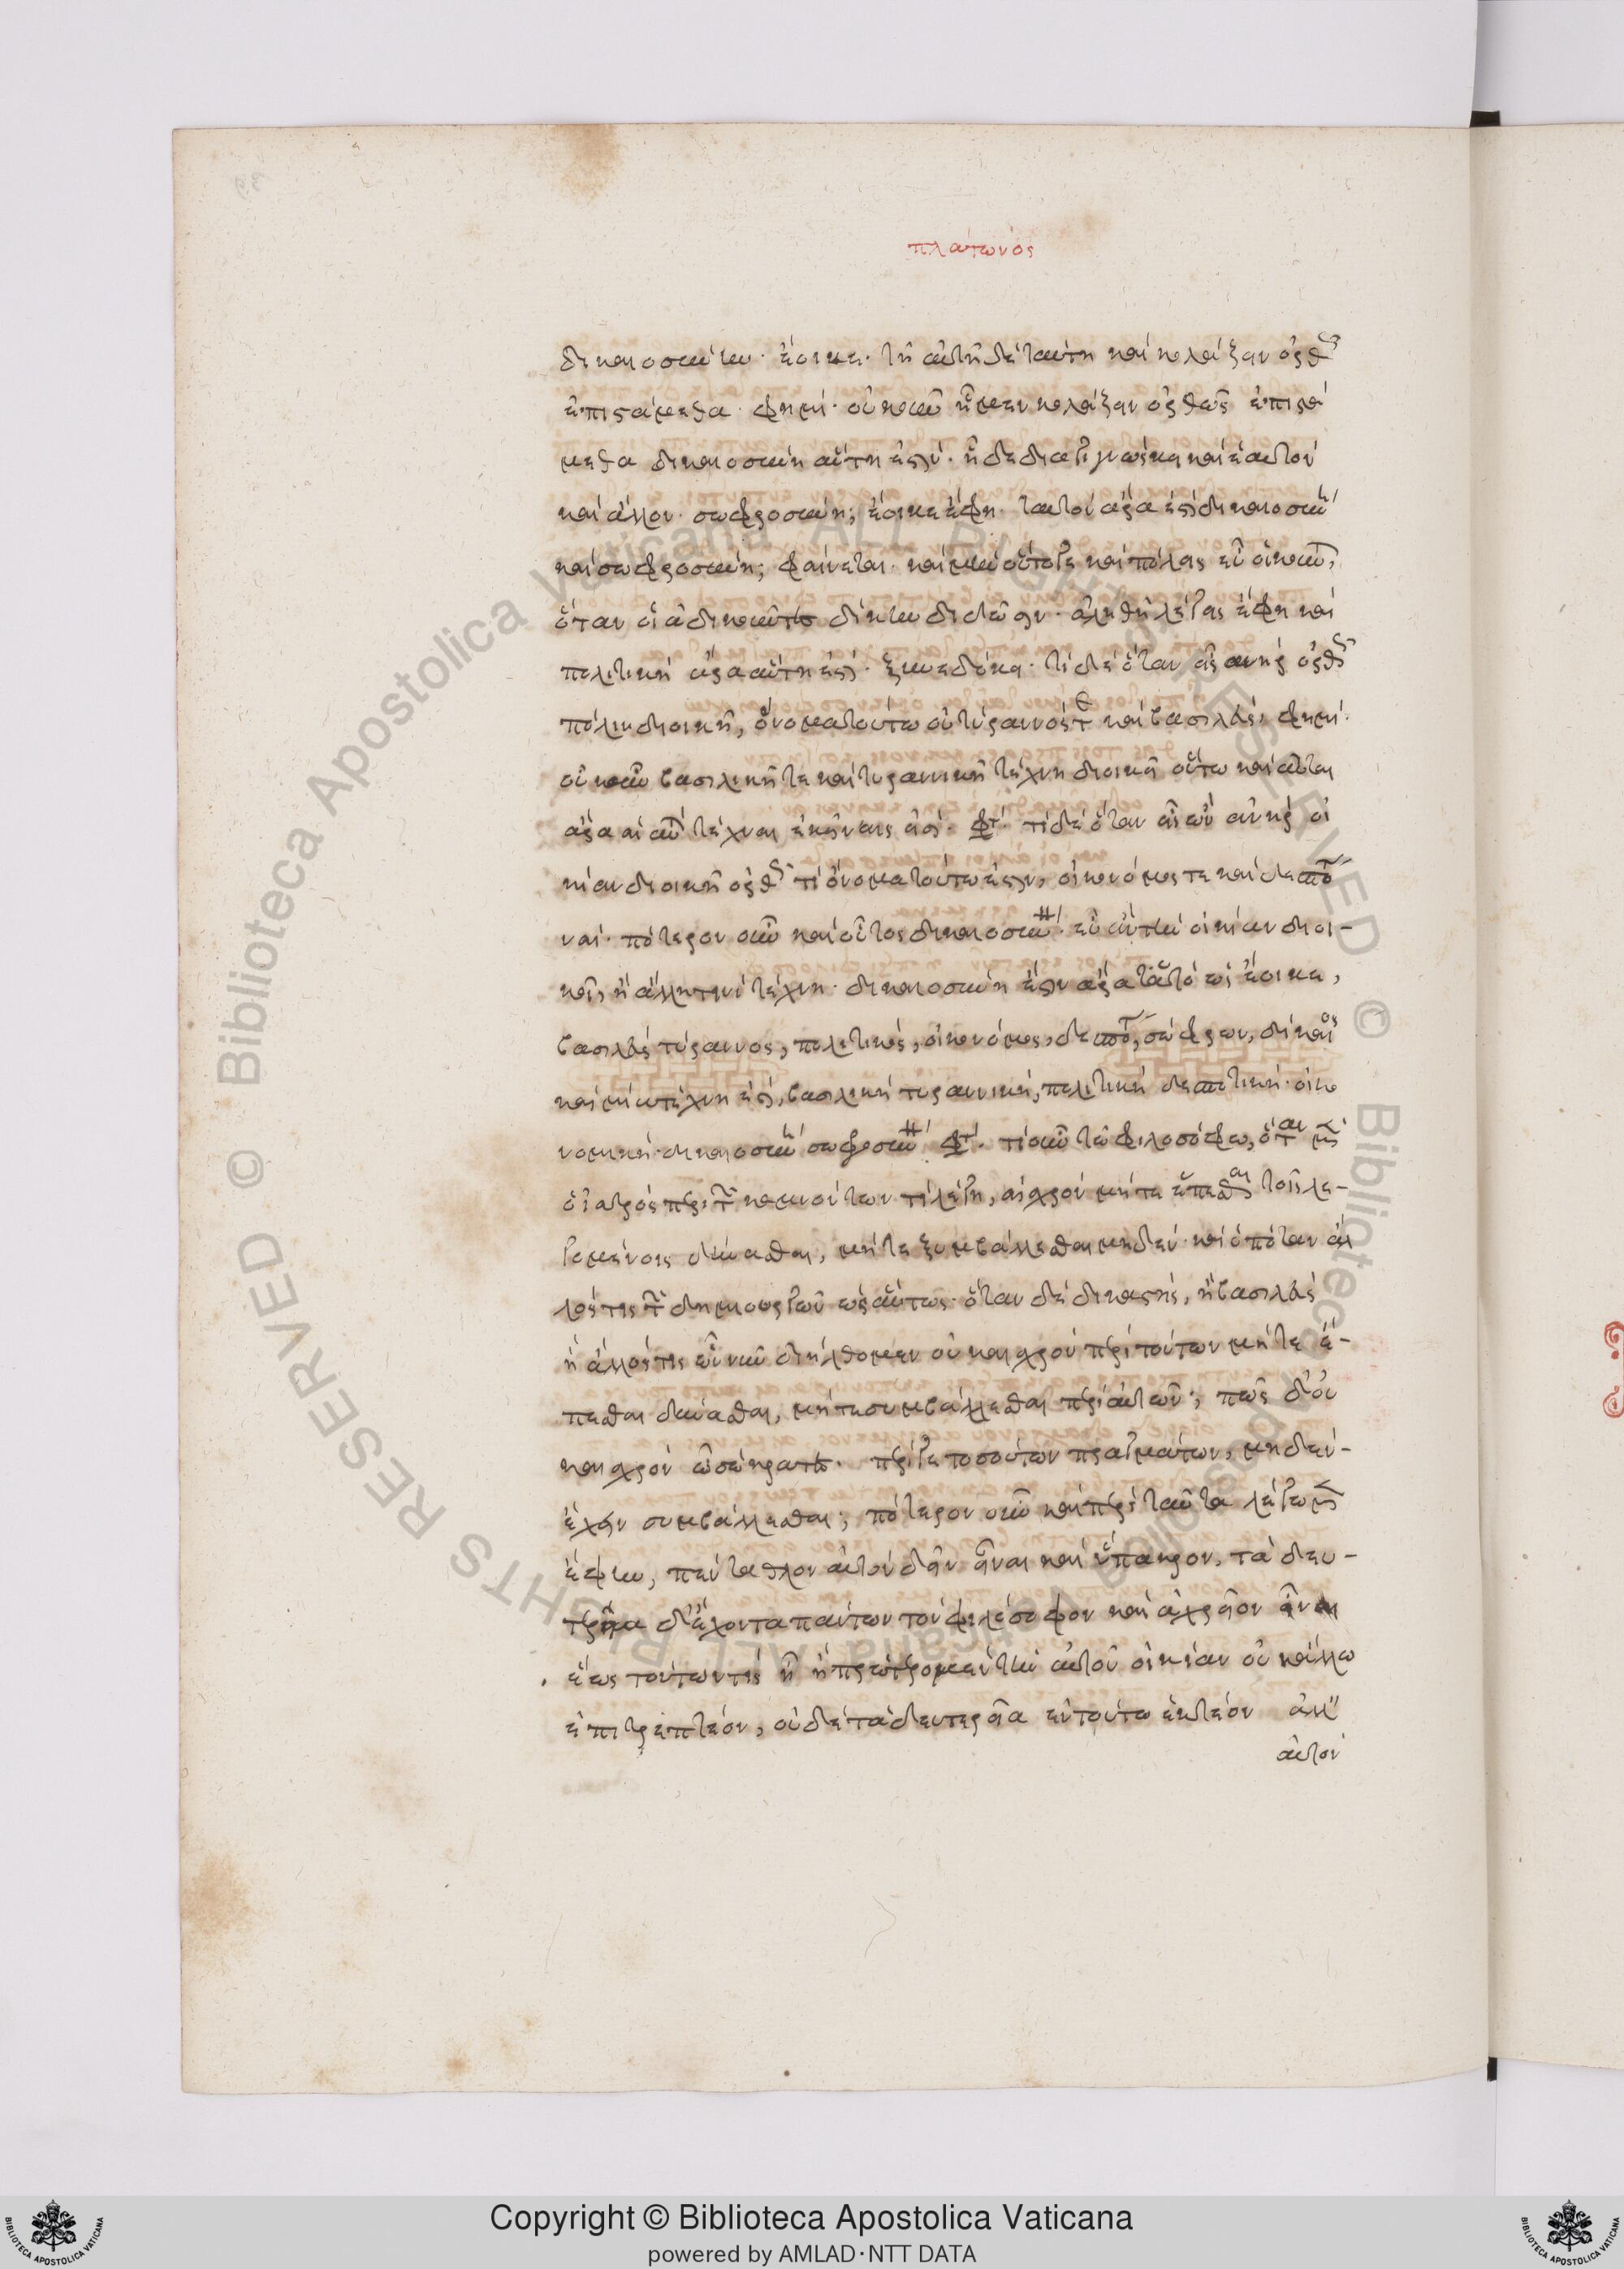 πλάτωνος
δικαιοσύνην· ἔοικε· τῇ αὐτῇ δὲ ταύτῃ καὶ κολάζειν ὀρθῶς
ἐπιστάμεθα· φημί· οὐκοῦν ᾗ μὲν κολάζειν ὀρθῶς ἐπιστά
μεθα δικαιοσύνη αὕτη ἐστίν· ᾗ δὲ διαγιγνώσκει καὶ ἑαυτὸν
καὶ ἄλλον· σωφροσύνη; ἔοικε ἔφη· ταυτὸν ἄρα ἐστὶ δικαιοσύνη
καὶ σωφροσύνη; φαίνεται· καὶ μὴν οὕτογε καὶ πόλεις εὖ οἰκοῦνται,
ὅταν οἱ ἀδικοῦντες δίκην διδῶσιν· ἀληθῆ λέγεις ἔφη καὶ
πολιτικὴ ἄρα αὕτη ἐστί· ξυνεδόκει· τί δὲ ὅταν εἷς ἀνὴρ ὀρθῶς
πόλιν διοικῇ, ὄνομα τούτω οὐ τύραννός τε καὶ βασιλεύς, φημί·
οὐκοῦν βασιλικῇ τε καὶ τυραννικῇ τέχνη διοικεῖ οὕτω καὶ αὗται
ἄρα αἱ αὐταὶ τέχναι ἐκείναις εἰσί· φησί· τί δὲ ὅταν εἷς ὢν ἀνὴρ οἰ
κίαν διοικῇ ὀρθῶς τί ὄνομα τούτω ἐστιν, οἰκονόμος τε καὶ δεσπότης
ναί· πότερον οὖν καὶ οὗτος δικαιοσύνη· εὖ ἂν τὴν οἰκίαν διοι-
κοῖ, ἢ ἄλλη τινὶ τέχνη· δικαιοσύνη ἔστιν ἄρα ταὐτὸ ὡς ἔοικε,
βασιλεὺς τύραννος, πολιτικός, οἰκονόμος, δεσπότης, σώφρων, δίκαιος
καὶ μία τέχνη ἐστὶ, βασιλικὴ τυραννική, πολιτικὴ δεσποτική· οἰκο
νομική· δικαιοσύνη σωφροσύνη φησί· τί οὖν τῷ φιλοσόφω, ὅταν μὲν
ὁ ἰατρὸς περὶ τῶν καμνόντων τι λέγῃ, αἰσχρὸν μήτε ἕπεσθαι τοῖς λε-
γομένοις δύνασθαι, μήτε ξυμβάλλεσθαι μηδέν· καὶ ὁπόταν ἄλ
λος τις τῶν δημιουργῶν ὡσαύτως· ὅταν δὲ δικαστής, ἢ βασιλεὺς
ἢ ἄλλος τις ὧν νῦν διήλθομεν οὐκ αἰσχρὸν περὶ τούτων μήτε ἕ-
πεσθαι δύνασθαι, μήτε συμβάλλεσθαι περὶ αὐτῶν; πῶς δ' οὐ
κ αἰσχρὸν ὦ σώκρατες· περί γε τοσούτων πραγμάτων, μηδὲν-
ἔχειν συμβάλλεσθαι; πότερον οὖν καὶ περὶ ταῦτα λέγωμεν
ἔφην, πένταθλον αὐτὸν δεῖν εἶναι καὶ ὕπακρον, τὰ δευ-
τερεῖα δ' ἔχοντα πάντων τὸν φιλόσοφον καὶ ἀχρεῖον εἶναι
ἕως τούτων τὶς ᾖ ἢ πρῶτρομεν τὴν αὐτοῦ οἰκίαν οὐκ ἄλλω
ἐπιτρεπτέον, οὐδὲ τὰ δευτερεῖα ἐν τούτω ἑκτέον ἀλλ'
αὐτὸν
Copyright © Biblioteca Apostolica Vaticana
powered by AMLAD·NTT DATA